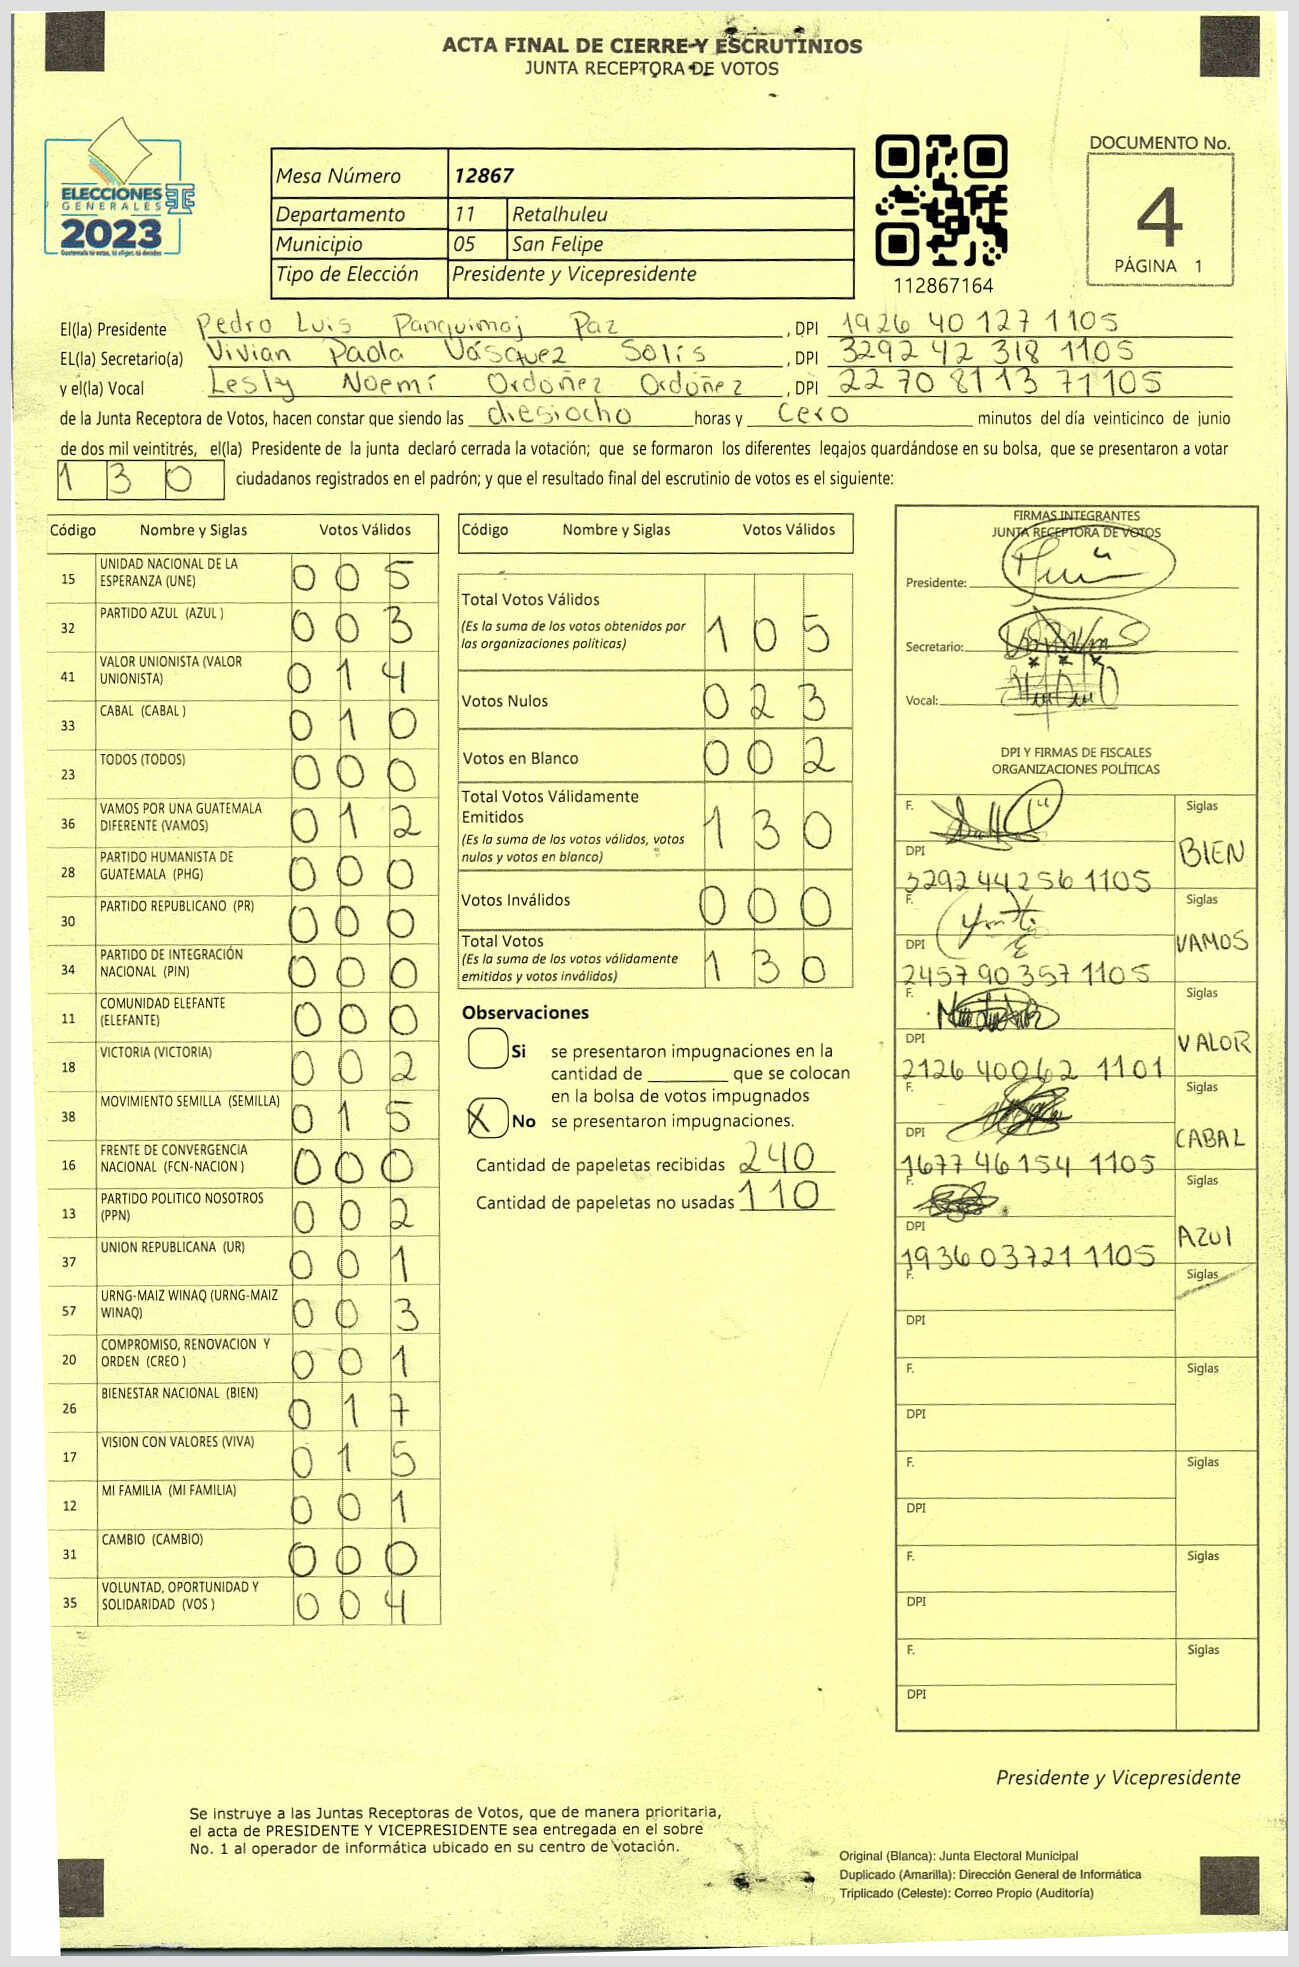 ACTA FINAL DE CIERRE Y ESCRUTINIOS
JUNTA RECEPTORA DE VOTOS
ELECCIONES
GENERALES
2023
Mesa Número 12867
Departamento 11 Retalhuleu
Municipio 05 San Felipe
Tipo de Elección Presidente y Vicepresidente
112867164
DOCUMENTO No.
4
PÁGINA 1
El(la) Presidente Pedro Luis Panquimaj Paz, DPI 1926 40127 1105
EL(la) Secretario(a) Vivian Paola Vásquez Solís, DPI 3292 42 318 1105
y el(la) Vocal Lesly Noemí Ordoñez Ordoñez, DPI 22 70 81 13 71105
de la Junta Receptora de Votos, hacen constar que siendo las diesiocho horas y cero minutos del día veinticinco de junio
de dos mil veintitrés, el(la) Presidente de la junta declaró cerrada la votación; que se formaron los diferentes legajos guardándose en su bolsa, que se presentaron a votar
130 ciudadanos registrados en el padrón; y que el resultado final del escrutinio de votos es el siguiente:
Código Nombre y Siglas Votos Válidos
15 UNIDAD NACIONAL DE LA
ESPERANZA (UNE) 005
32 PARTIDO AZUL (AZUL ) 003
41 VALOR UNIONISTA (VALOR
UNIONISTA) 014
33 CABAL (CABAL ) 010
23 TODOS (TODOS) 000
36 VAMOS POR UNA GUATEMALA
DIFERENTE (VAMOS) 012
28 PARTIDO HUMANISTA DE
GUATEMALA (PHG) 000
30 PARTIDO REPUBLICANO (PR) 000
34 PARTIDO DE INTEGRACIÓN
NACIONAL (PIN) 000
11 COMUNIDAD ELEFANTE
(ELEFANTE) 000
18 VICTORIA (VICTORIA) 002
38 MOVIMIENTO SEMILLA (SEMILLA) 015
16 FRENTE DE CONVERGENCIA
NACIONAL (FCN-NACION ) 000
13 PARTIDO POLITICO NOSOTROS
(PPN) 002
37 UNION REPUBLICANA (UR) 001
57 URNG-MAIZ WINAQ (URNG-MAIZ
WINAQ) 003
20 COMPROMISO, RENOVACION Y
ORDEN (CREO ) 001
26 BIENESTAR NACIONAL (BIEN) 017
17 VISION CON VALORES (VIVA) 015
12 MI FAMILIA (MI FAMILIA) 001
31 CAMBIO (CAMBIO) 000
35 VOLUNTAD, OPORTUNIDAD Y
SOLIDARIDAD (VOS ) 004
Código Nombre y Siglas Votos Válidos
Total Votos Válidos
(Es la suma de los votos obtenidos por
las organizaciones políticas) 105
Votos Nulos 023
Votos en Blanco 002
Total Votos Válidamente
Emitidos
(Es la suma de los votos válidos, votos
nulos y votos en blanco) 130
Votos Inválidos 000
Total Votos
(Es la suma de los votos válidamente
emitidos y votos inválidos) 130
Observaciones
Si se presentaron impugnaciones en la
cantidad de ________ que se colocan
en la bolsa de votos impugnados
X No se presentaron impugnaciones.
Cantidad de papeletas recibidas 240
Cantidad de papeletas no usadas 110
FIRMAS INTEGRANTES
JUNTA RECEPTORA DE VOTOS
Presidente:
Secretario:
Vocal:
DPI Y FIRMAS DE FISCALES
ORGANIZACIONES POLÍTICAS
F. Siglas
DPI BIEN
3292 44256 1105
F. Siglas
DPI VAMOS
2457 90 357 1105
F. Siglas
DPI VALOR
2126 40062 1101
F. Siglas
DPI CABAL
1677 46154 1105
F. Siglas
DPI AZUl
1936 03721 1105
F. Siglas
DPI
F. Siglas
DPI
F. Siglas
DPI
F. Siglas
DPI
F. Siglas
DPI
Presidente y Vicepresidente
Se instruye a las Juntas Receptoras de Votos, que de manera prioritaria,
el acta de PRESIDENTE Y VICEPRESIDENTE sea entregada en el sobre
No. 1 al operador de informática ubicado en su centro de votación.
Original (Blanca): Junta Electoral Municipal
Duplicado (Amarilla): Dirección General de Informática
Triplicado (Celeste): Correo Propio (Auditoría)